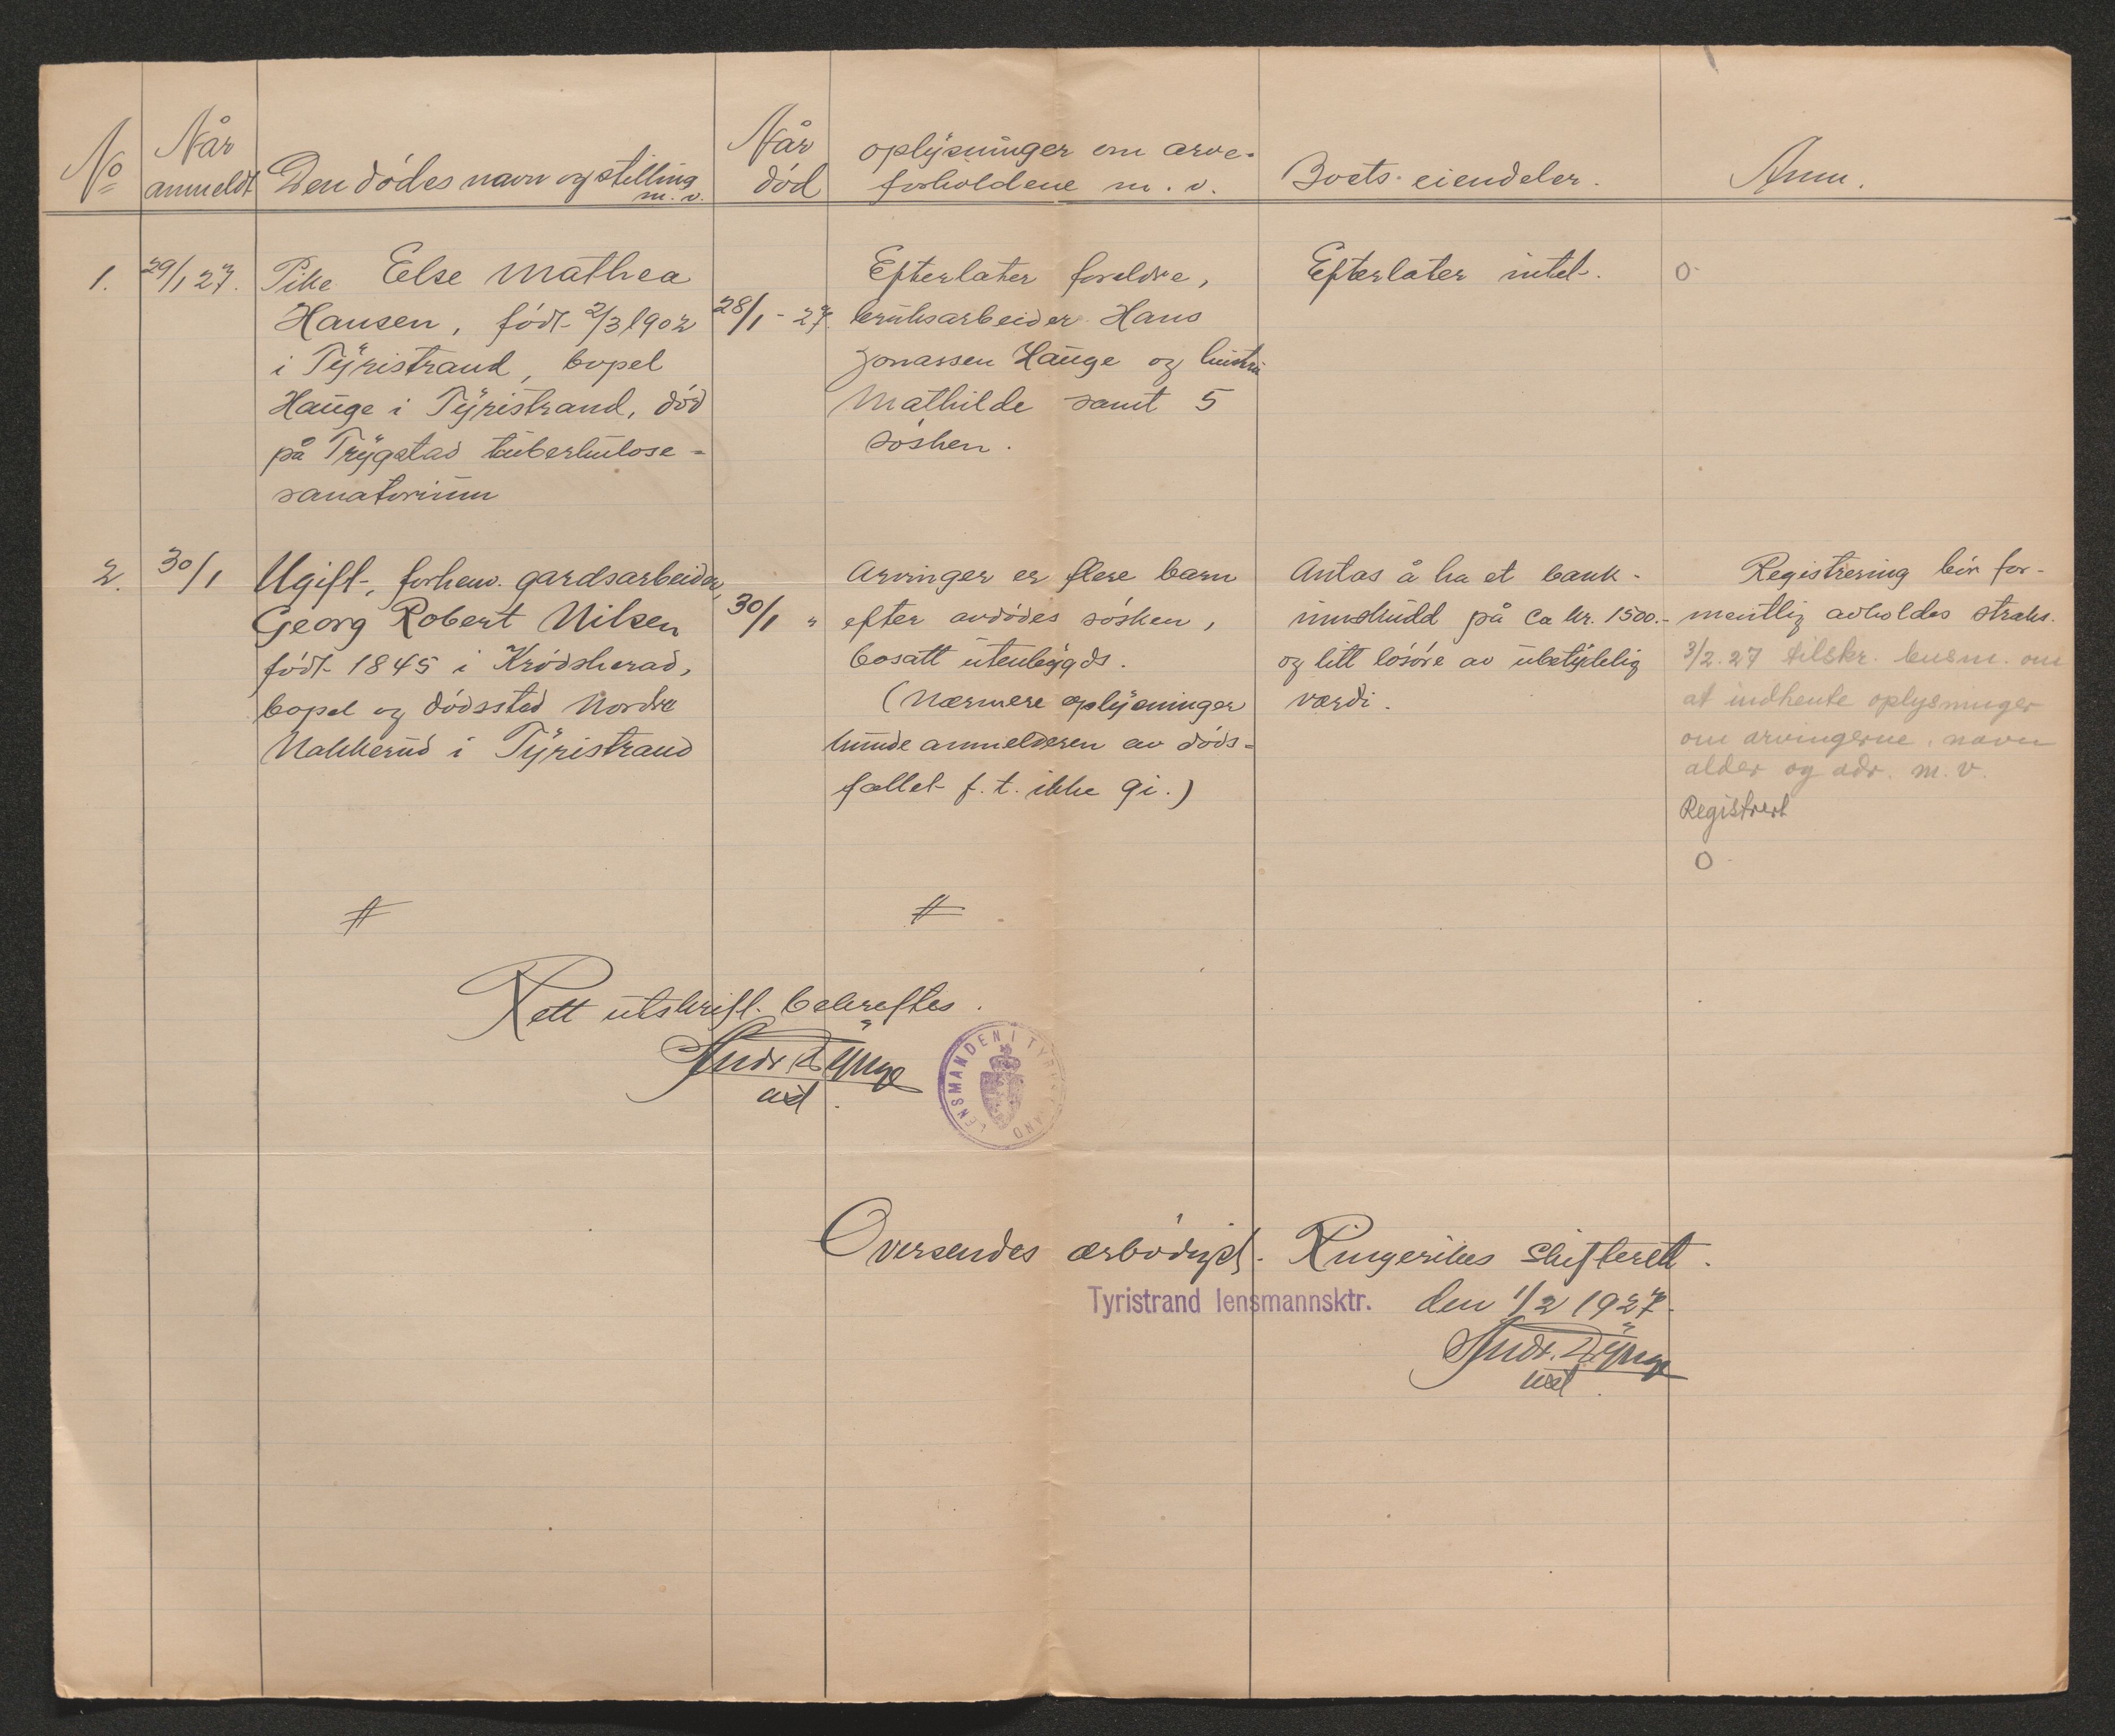 No
Når
anmeldt
Den dødes navn og stilling
m. v.
Når
død
oplysninger om arve-
forholdene m. v.
Boets eiendeler.
Anm.
1.
29/1 27.
Pike Else Mathea
Hansen, født 2/3 1902
i Tyristrand, bopel
Hauge i Tyristrand, død
på Trygstad tuberkulose-
sanatorium
28/1 - 27.
Efterlater foreldre,
bruksarbeider Hans
Jonassen Hauge og hustru
Mathilde samt 5
søsken.
Efterlater intet.
0
2.
30/1
Ugift, forhenv. gardsarbeider,
Georg Robert Nilsen
født 1845 i Krødsherad,
bopel og dødssted Nordre
Nakkerud i Tyristrand
30/1 "
Arvinger er flere barn
efter avdødes søsken,
bosatt utenbygds.
(Nærmere oplysninger
kunde anmelderen av døds-
fallet f. t. ikke gi.)
Antas å ha et bank-
innskudd på ca kr. 1500.-
og litt løsøre av ubetydelig
værdi.
Registrering bør for-
mentlig avholdes straks.
3/2.27 tilskr. lensm. om
at indhente oplysninger
om arvingerne, navn
alder og adr. m. v.
Registrert
0
Rett utskrift bekreftes.
LENSMANDEN I TYRISTRAND
Oversendes ærbødigst Ringerikes Skifterett.
Tyristrand lensmannsktr. den 1/2 1927.